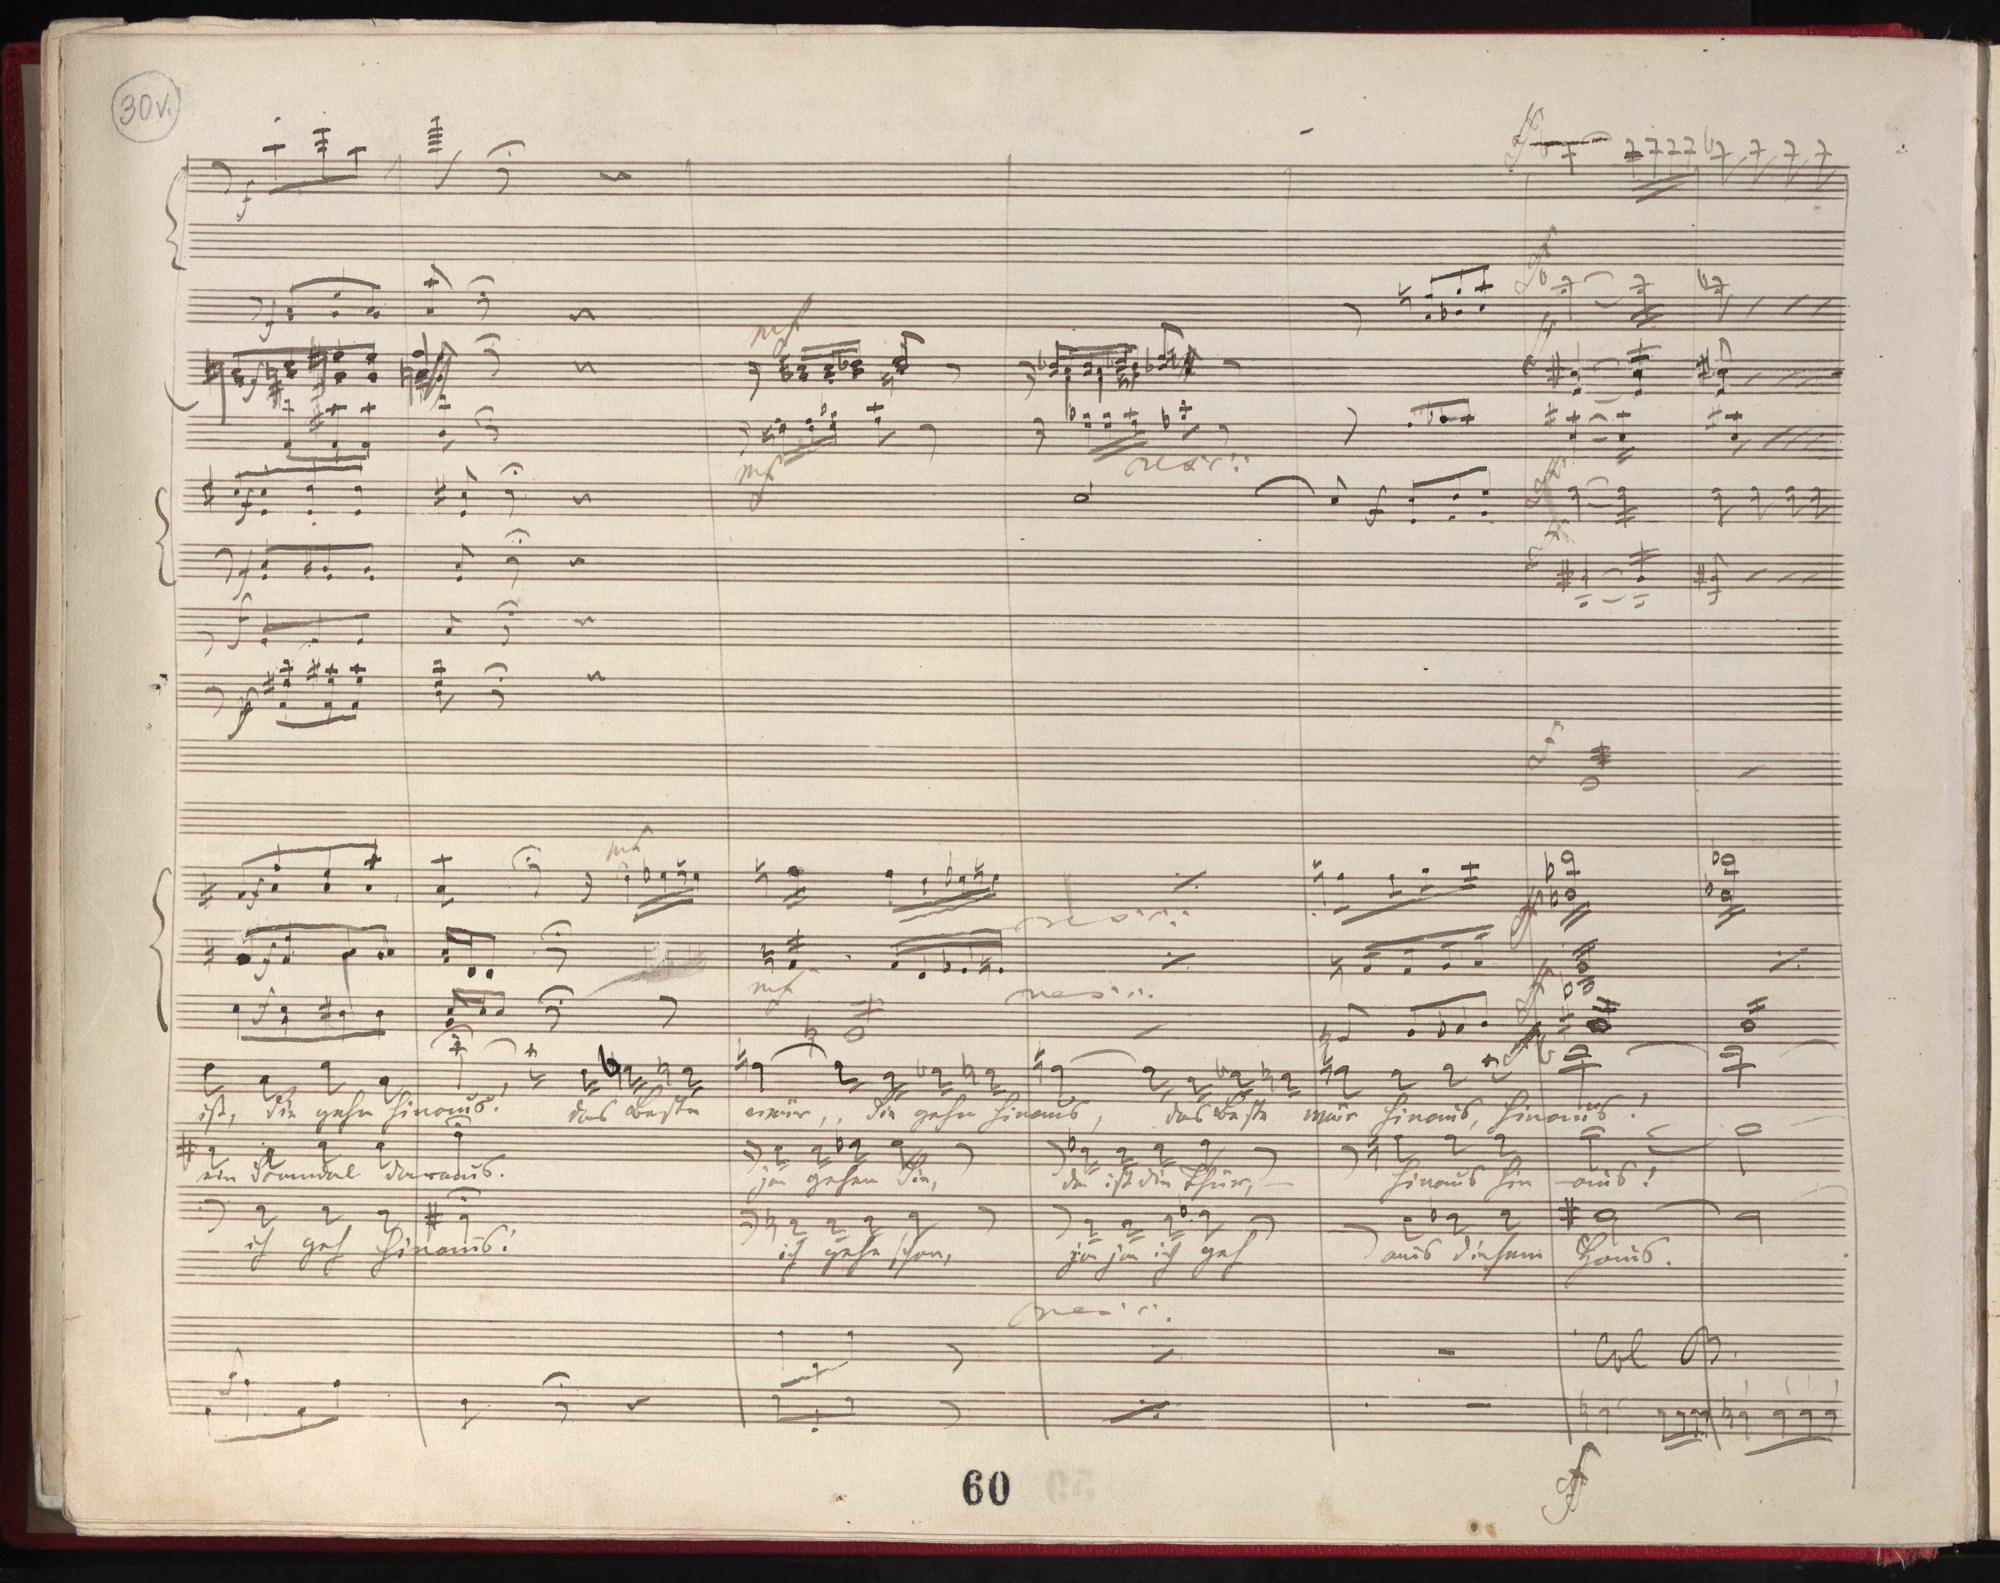 30v.
f
f
mf
mf
cresc:
f
f
f
f
mf
cresc:
mf
cresc:
ist, Sie gehn hinaus! das Beste wär, Sie gehn hinaus, das Beste wär hinaus, hinaus!
ein Scandal daraus. ja gehen Sie, da ist die Thür, hinaus hin-aus!
ich geh hinaus! ich gehe schon, ja ja ich geh aus diesem Haus.
cresc:
Col B.
f
ff
60